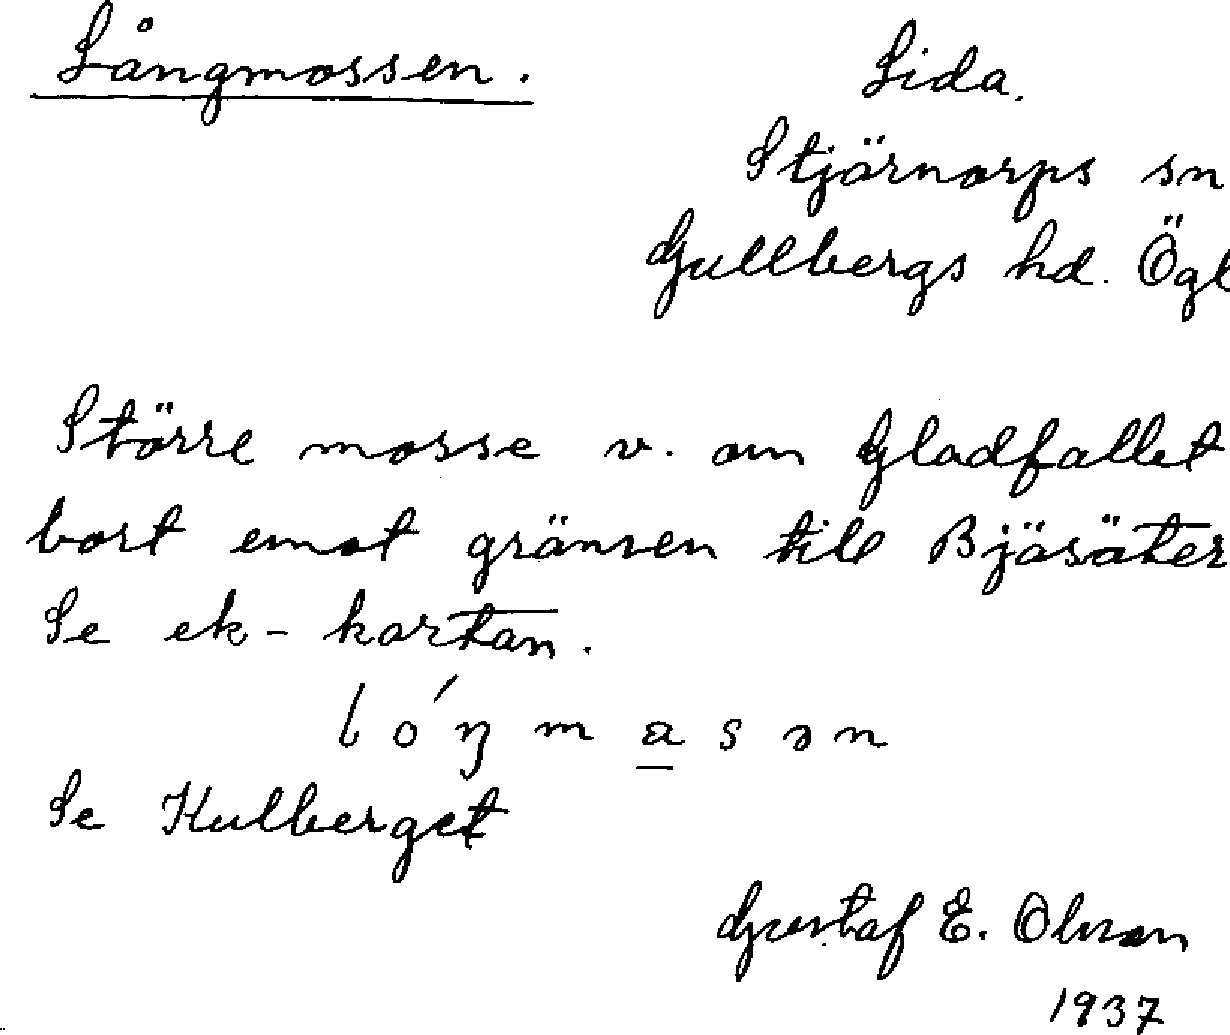 Långmossen.
Lida.
Stjärnorps sn
Gullbergs hd. Ögl
Större mosse v. om Gladfallet
bort emot gränsen till Bjäsäter
Se ek-kartan.
lóŋmasən
Se Kulberget
Gustaf E. Olsson
1937